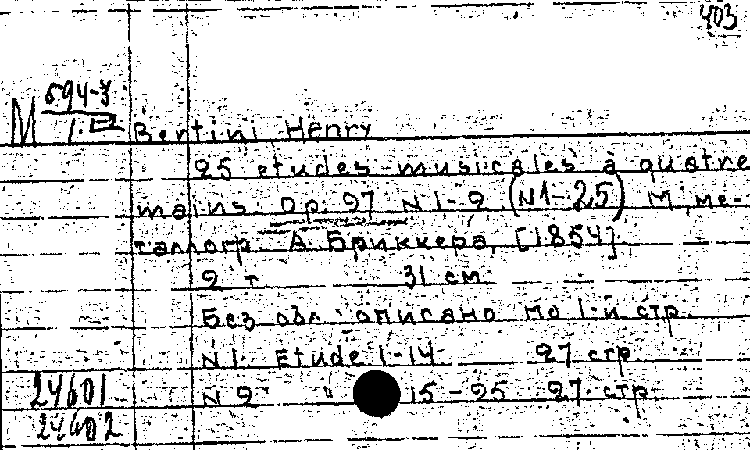 403
М 694-3
1.
Bertini Henry
25 etudes musicales à quatre
mains Op. 97 N 1-2 (N1-25) М, ме-
таллогр. А. Бриккера, [1854]
2 т 31 см
Без обл. описано по 1-й стр.
N 1. Etude 1-14 27 стр
N 2 " 15-25 27. стр.
24601
24602